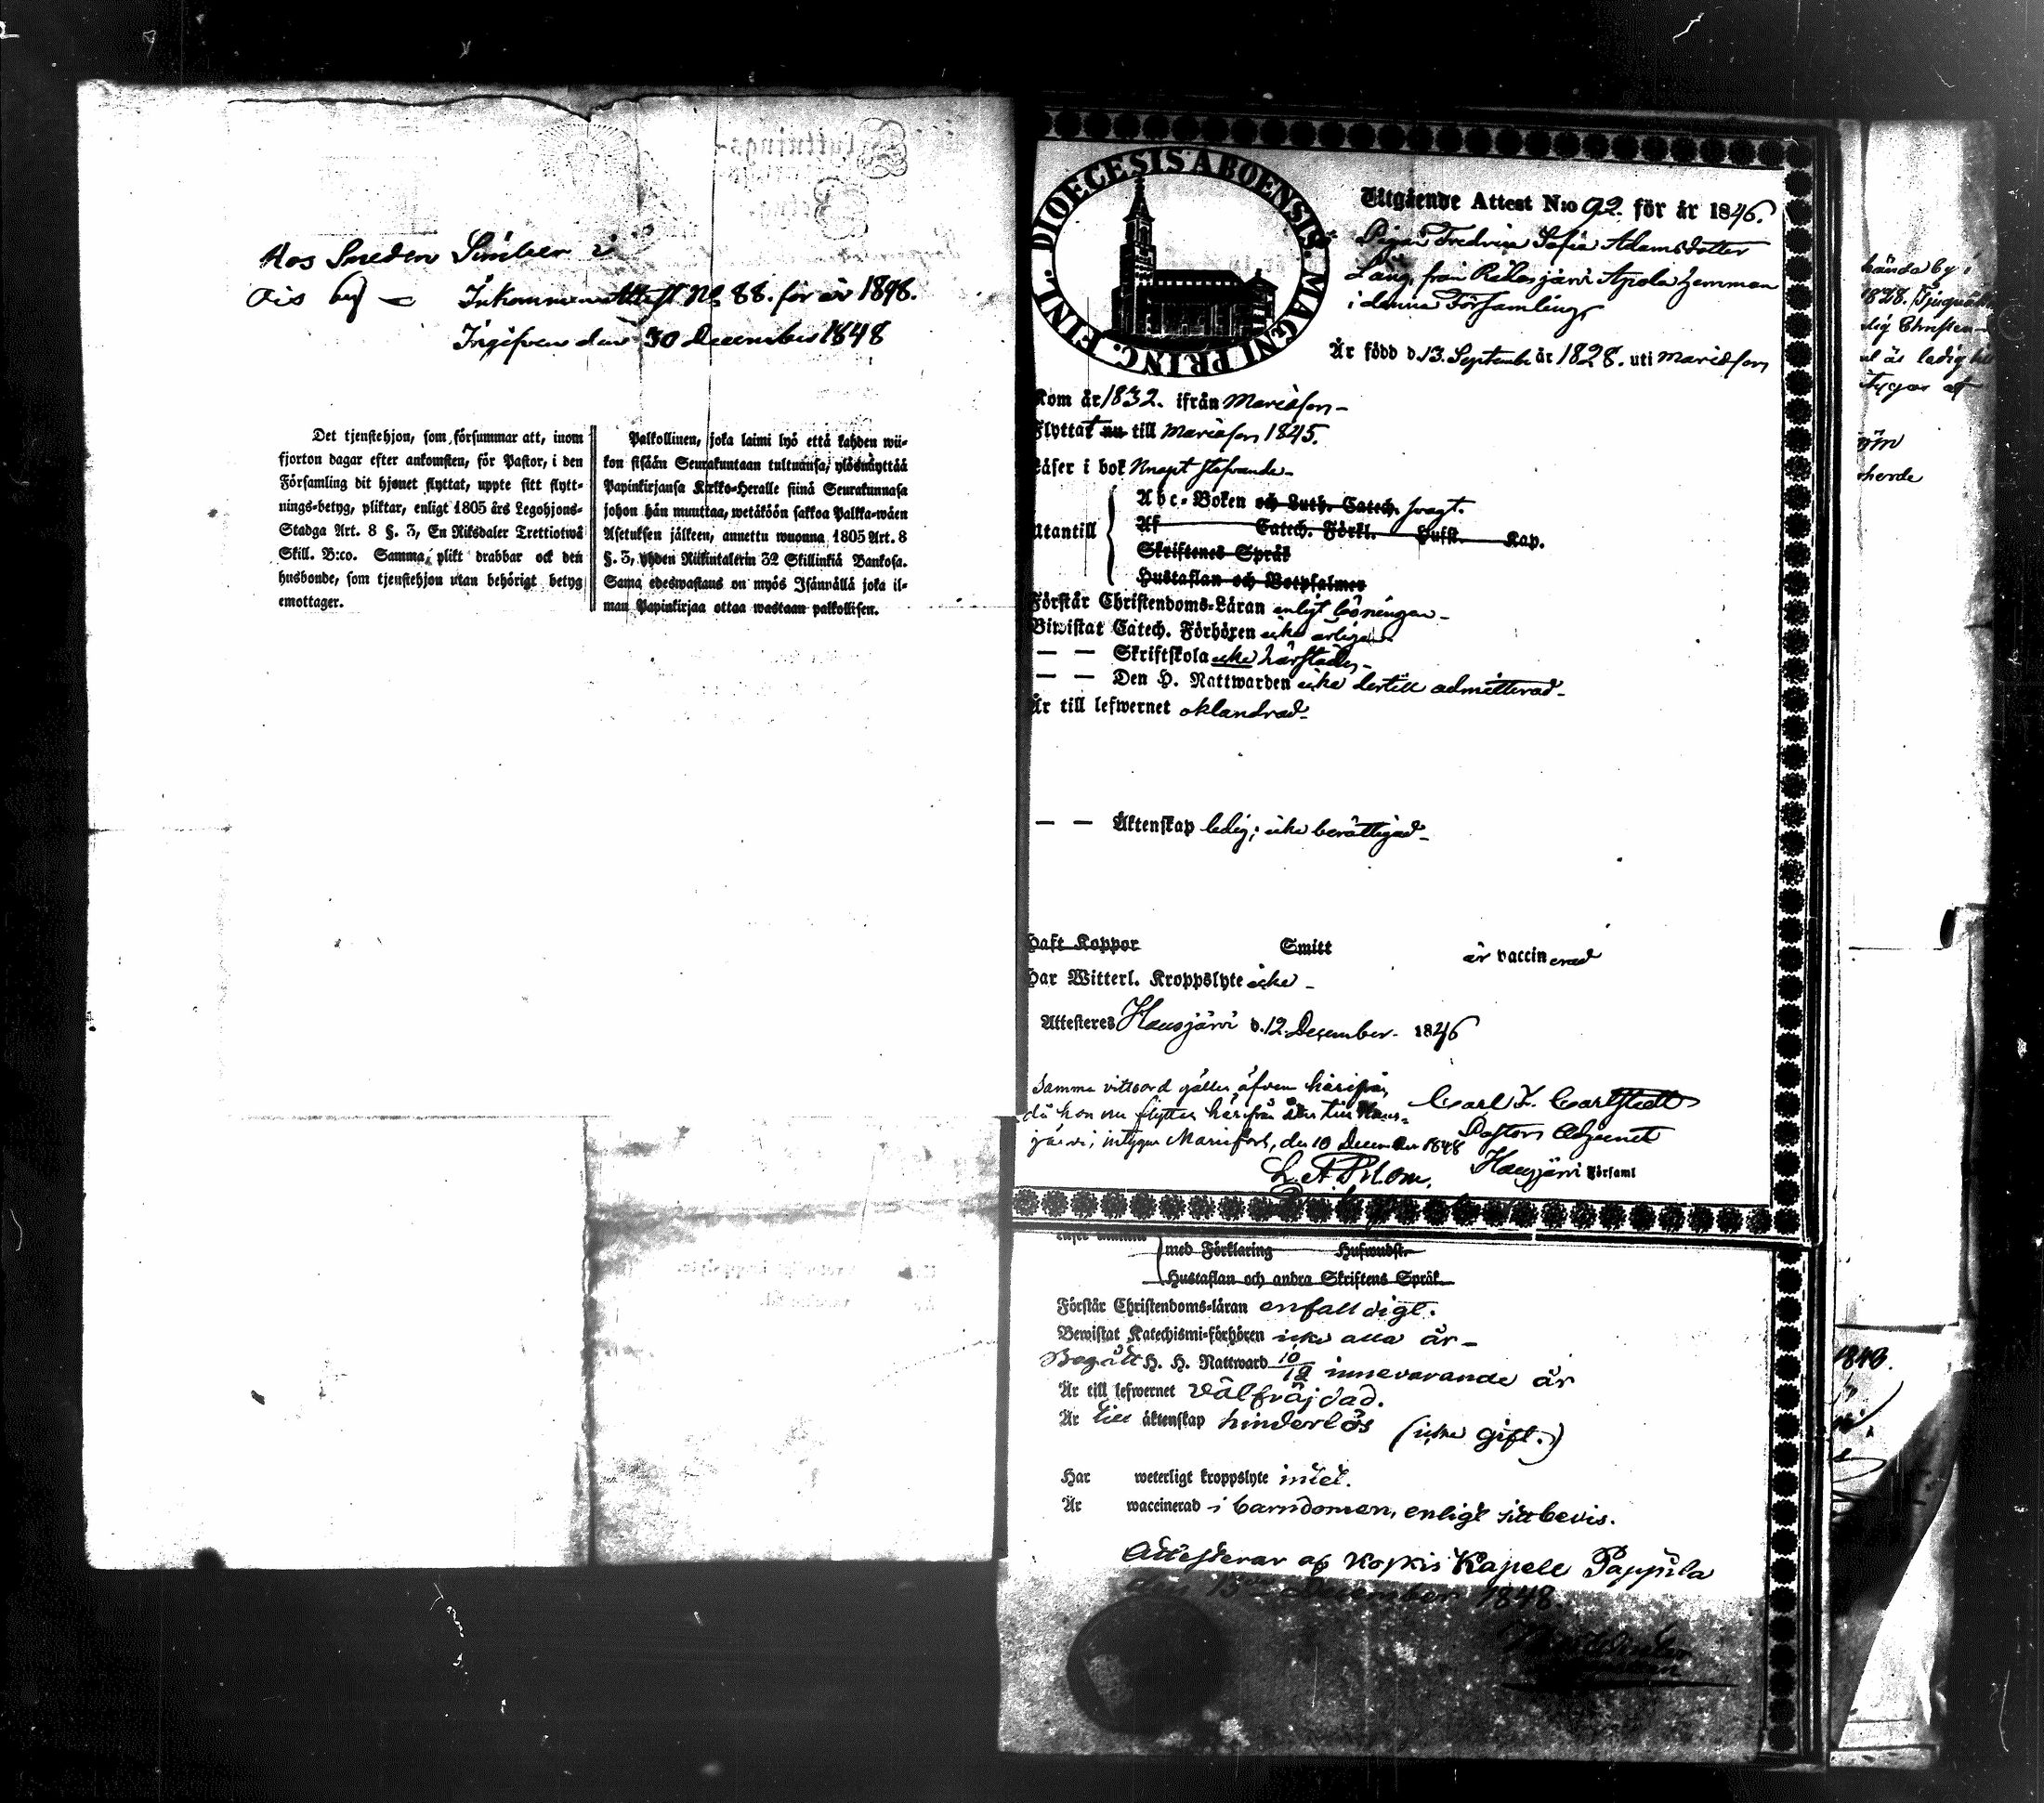 Hos Smeden Simber i
Ois by — Inkommen Attest No 88. för år 1898.
Ingifven den 30 December 1848
Det tjenstehjon, som försummar att, inom
fjorton dagar efter ankomsten, för Pastor, i den
Församling dit hjonet flyttat, uppte sitt flytt-
nings-betyg, pliktar, enligt 1805 års Legohjons-
Stadga Art. 8 §. 3, En Riksdaler Trettiotwå
Skill. B:co. Samma plikt drabbar ock den
husbonde, som tjenstehjon utan behörigt betyg
emottager.
Palkollinen, joka laimi lyö että kahden wii-
kon sisään Seurakuntaan tultuansa, ylösnäyttää
Papinkirjansa Kirkko-Heralle siinä Seurakunnasa
johon hän muuttaa, wetäköön sakkoa Palkka-wäen
Asetuksen jälkeen, annettu wuonna 1805 Art. 8
§. 3, yhden Riikintalerin 32 Skillinkiä Bankosa.
Sama edeswastaus on myös Isännällä joka il-
man Papinkirjaa ottaa wastaan palkollisen.
FINL. DIOECESIS ABOENSIS. MAGNI PRINC.
Utgående Attest N:o 92. för år 1846.
Pigan Fredrica Sofia Adamsdotter
Läng från Ridasjärvi Apola hemman
i denna Församling
Är född d. 13. September år 1828. uti Mariefors
Kom år 1832. ifrån Mariefors -
Flyttat nu till Mariefors 1845.
Läser i bok knapt stafvande -
Utantill
Abc-Boken och Luth. Catech. svagt.
Af Catech. Förkl. Husst. Kap.
Skriftenes Språk
Hustaflan och Botpsalmer
Förstår Christendoms-Läran enligt läsningen -
Biwistat Catech. Förhören icke årligen
— — Skriftskola icke härstädes -
— — Den H. Nattwarden icke dertill admitterad -
Är till lefwernet oklandrad -
— — Äktenskap ledig; icke berättigad -
Haft Koppor Smitt är vaccinerad
Har Witterl. Kroppslyte icke -
Attesteres Hausjärvi d. 12. December. 1846
Samma vittsord gäller äfven härifrån,
då hon nu flyttar härifrån åter till Haus-
järvi; intygar Mariefors, den 10 December 1848
Carl F. Carlstedt
Pastors Adjunct
Hausjärvi Församl
med Förklaring Huswudst.
Hustaflan och andra Skriftens Språk
Förstår Christendoms-läran enfalldigt.
Bewistat Katechismi-förhören icke alla år -
Begått H. H. Nattward 10/12 innevarande år
Är till lefwernet välfräjdad.
Är till äktenskap hinderlös (icke gift.)
Har weterligt kroppslyte intet.
Är waccinerad i barndomen, enligt sitt bevis.
Attesterar af Koskis Kapell Pappila
den 13de December 1848.
by i
1828.
dig Christen-
är ledig till
intygar af
1848.